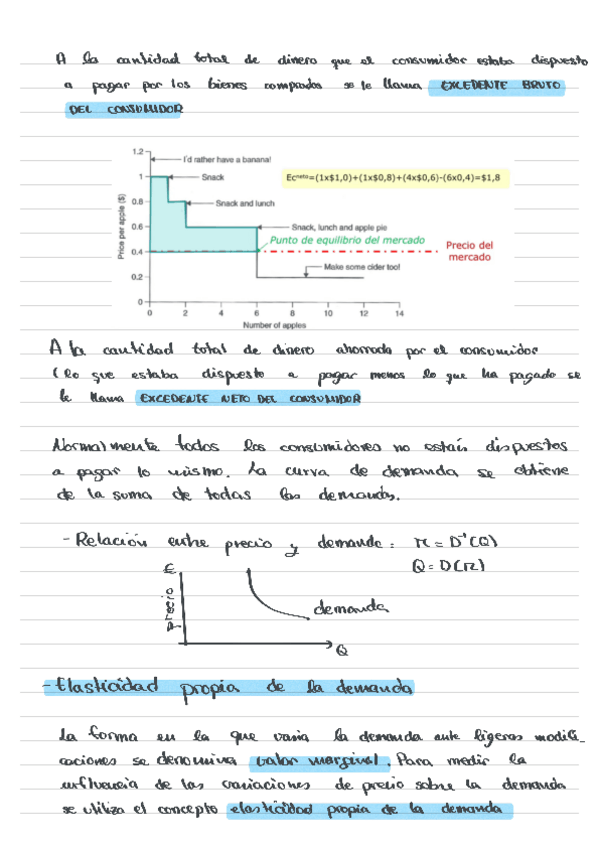 A la cantidad total de dinero que el consumidor estaba dispuesto
a pagar por los bienes comprados se le llama EXCEDENTE BRUTO
DEL CONSUMIDOR
1.2
I'd rather have a banana!
1
Snack
Ecⁿᵉᵗᵒ=(1x$1,0)+(1x$0,8)+(4x$0,6)-(6x0,4)=$1,8
Price per apple ($)
0.8
Snack and lunch
0.6
Snack, lunch and apple pie
Punto de equilibrio del mercado
0.4
Precio del
mercado
Make some cider too!
0.2
0
0 2 4 6 8 10 12 14
Number of apples
A la cantidad total de dinero ahorrada por el consumidor
(lo que estaba dispuesto a pagar menos lo que ha pagado se
le llama EXCEDENTE NETO DEL CONSUMIDOR
Normalmente todos los consumidores no están dispuestos
a pagar lo mismo. La curva de demanda se obtiene
de la suma de todas las demandas.
- Relación entre precio y demanda: π = D⁻¹(Q)
Q = D(π)
€
precio
demanda
Q
- Elasticidad propia de la demanda
La forma en la que varia la demanda ante ligeras modifi_
caciones se denomina valor marginal. Para medir la
influencia de las variaciones de precio sobre la demanda
se utiliza el concepto elasticidad propia de la demanda